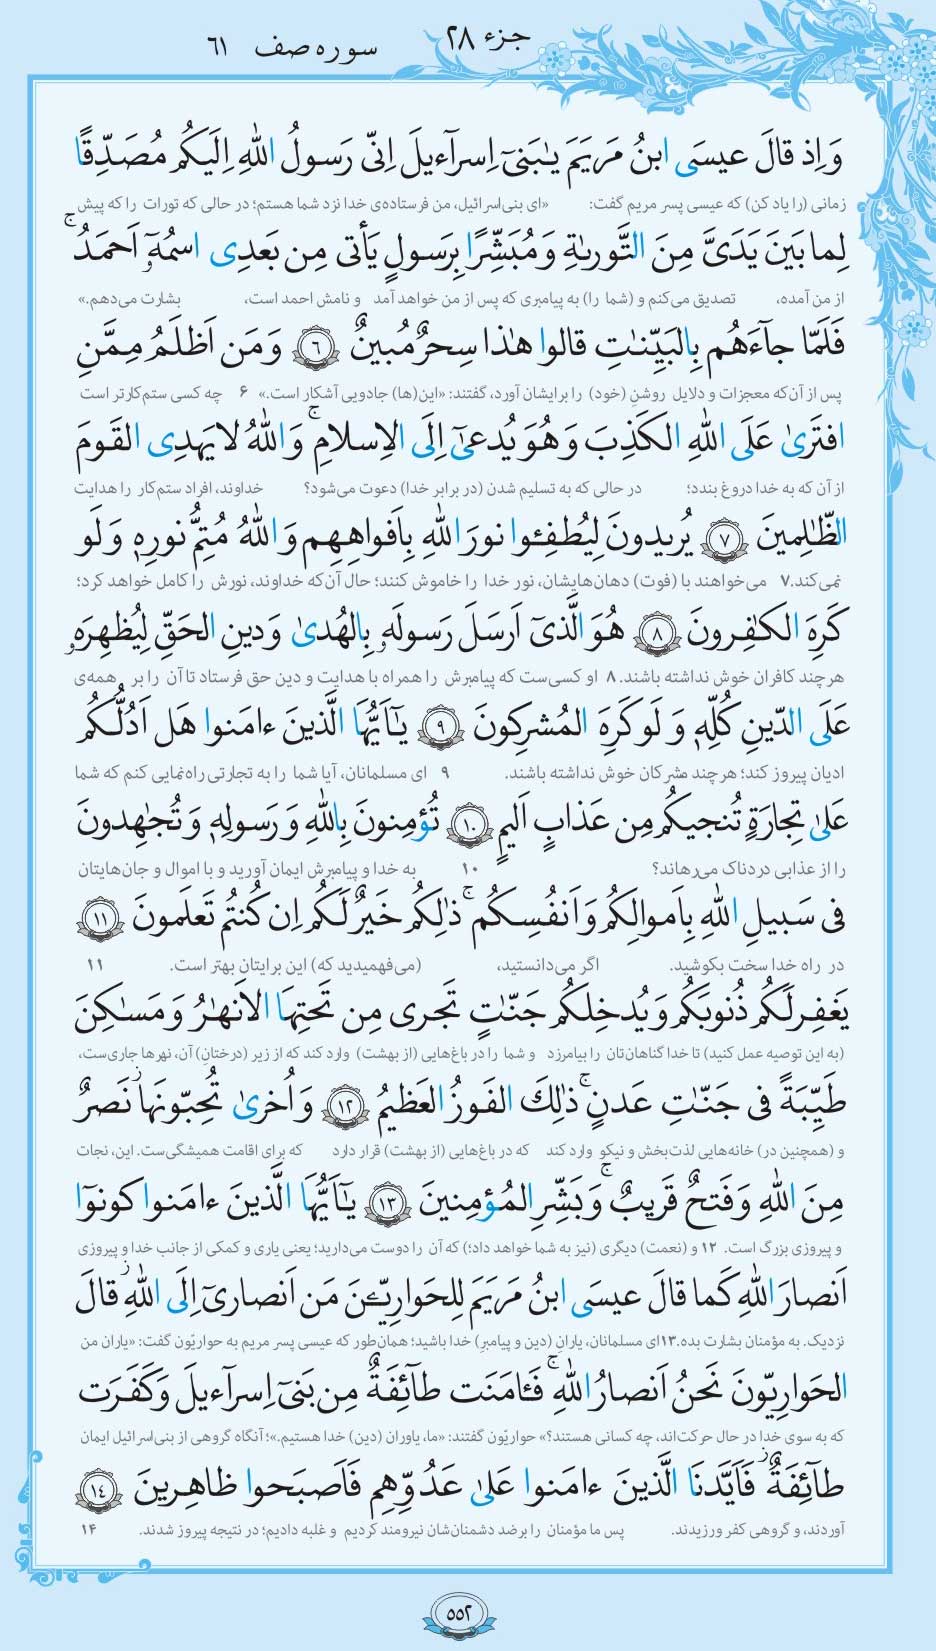 جزء ۲۸
سوره صف ۶۱
وَ اِذ قالَ عیسَی ابنُ مَریَمَ یٰبَنیٓ اِسرآءیلَ اِنّی رَسولُ اللهِ اِلَیکُم مُصَدِّقًا
زمانی (را یاد کن) که عیسی پسر مریم گفت: «ای بنی‌اسرائیل، من فرستاده‌ی خدا نزد شما هستم؛ در حالی که تورات را که پیش
لِما بَینَ یَدَیَّ مِنَ التَّورىٰةِ وَ مُبَشِّرًا بِرَسولٍ یَأتی مِن بَعدِی اسمُهٗٓ اَحمَدُ ۚ
از من آمده، تصدیق می‌کنم و (شما را) به پیامبری که پس از من خواهد آمد و نامش احمد است، بشارت می‌دهم.»
فَلَمّا جآءَهُم بِالبَیِّنٰتِ قالوا هٰذا سِحرٌ مُبینٌ ﴿٦﴾ وَ مَن اَظلَمُ مِمَّنِ
پس از آن‌که معجزات و دلایل روشنِ (خود) را برایشان آورد، گفتند: «این(ها) جادویی آشکار است.» ۶ چه کسی ستم‌کارتر است
افتَرىٰ عَلَی اللهِ الکَذِبَ وَ هُوَ یُدعىٰٓ اِلَی الاِسلامِ ۚ وَ اللهُ لا یَهدِی القَومَ
از آن که به خدا دروغ بندد؛ در حالی که به تسلیم شدن (در برابر خدا) دعوت می‌شود؟ خداوند، افراد ستم‌کار را هدایت
الظّٰلِمینَ ﴿٧﴾ یُریدونَ لِیُطفِـٔوا نورَ اللهِ بِاَفواهِهِم وَ اللهُ مُتِمُّ نورِهٖ وَ لَو
نمی‌کند.۷ می‌خواهند با (فوت) دهان‌هایشان، نور خدا را خاموش کنند؛ حال آن‌که خداوند، نورش را کامل خواهد کرد؛
کَرِهَ الکٰفِرونَ ﴿٨﴾ هُوَ الَّذیٓ اَرسَلَ رَسولَهٗ بِالهُدىٰ وَ دینِ الحَقِّ لِیُظهِرَهٗ
هرچند کافران خوش نداشته باشند.۸ او کسی‌ست که پیامبرش را همراه با هدایت و دین حق فرستاد تا آن را بر همه‌ی
عَلَی الدّینِ کُلِّهٖ وَ لَو کَرِهَ المُشرِکونَ ﴿٩﴾ یٰٓاَیُّهَا الَّذینَ ءامَنوا هَل اَدُلُّکُم
ادیان پیروز کند؛ هرچند مشرکان خوش نداشته باشند. ۹ ای مسلمانان، آیا شما را به تجارتی راه‌نمایی کنم که شما
عَلىٰ تِجارَةٍ تُنجیکُم مِن عَذابٍ اَلیمٍ ﴿١٠﴾ تُؤمِنونَ بِاللهِ وَ رَسولِهٖ وَ تُجٰهِدونَ
را از عذابی دردناک می‌رهاند؟ ۱۰ به خدا و پیامبرش ایمان آورید و با اموال و جان‌هایتان
فی سَبیلِ اللهِ بِاَموالِکُم وَ اَنفُسِکُم ۚ ذٰلِکُم خَیرٌ لَکُم اِن کُنتُم تَعلَمونَ ﴿١١﴾
در راه خدا سخت بکوشید. اگر می‌دانستید، (می‌فهمیدید که) این برایتان بهتر است. ۱۱
یَغفِر لَکُم ذُنوبَکُم وَ یُدخِلکُم جَنّٰتٍ تَجری مِن تَحتِهَا الاَنهٰرُ وَ مَسٰکِنَ
(به این توصیه عمل کنید) تا خدا گناهان‌تان را بیامرزد و شما را در باغ‌هایی (از بهشت) وارد کند که از زیر (درختانِ) آن، نهرها جاری‌ست،
طَیِّبَةً فی جَنّٰتِ عَدنٍ ۚ ذٰلِکَ الفَوزُ العَظیمُ ﴿١٢﴾ وَ اُخرىٰ تُحِبّونَها ۖ نَصرٌ
و (همچنین در) خانه‌هایی لذت‌بخش و نیکو وارد کند که در باغ‌هایی (از بهشت) قرار دارد که برای اقامت همیشگی‌ست. این، نجات
مِنَ اللهِ وَ فَتحٌ قَریبٌ ۗ وَ بَشِّرِ المُؤمِنینَ ﴿١٣﴾ یٰٓاَیُّهَا الَّذینَ ءامَنوا کونوٓا
و پیروزی بزرگ است. ۱۲ و (نعمت) دیگری (نیز به شما خواهد داد؛) که آن را دوست می‌دارید؛ یعنی یاری و کمکی از جانب خدا و پیروزی
اَنصارَ اللهِ کَما قالَ عیسَی ابنُ مَریَمَ لِلحَوارِیّـۧنَ مَن اَنصاریٓ اِلَی اللهِ ۖ قالَ
نزدیک. به مؤمنان بشارت بده.۱۳ای مسلمانان، یارانِ (دین و پیامبرِ) خدا باشید؛ همان‌طور که عیسی پسر مریم به حواریّون گفت: «یاران من
الحَوارِیّونَ نَحنُ اَنصارُ اللهِ ۖ فَـٔامَنَت طآئِفَةٌ مِن بَنیٓ اِسرآءیلَ وَ کَفَرَت
که به سوی خدا در حال حرکت‌اند، چه کسانی هستند؟» حواریّون گفتند: «ما، یاوران (دین) خدا هستیم.»؛ آنگاه گروهی از بنی‌اسرائیل ایمان
طآئِفَةٌ ۖ فَاَیَّدنَا الَّذینَ ءامَنوا عَلىٰ عَدُوِّهِم فَاَصبَحوا ظاهِرینَ ﴿١٤﴾
آوردند، و گروهی کفر ورزیدند. پس ما مؤمنان را برضد دشمنان‌شان نیرومند کردیم و غلبه دادیم؛ در نتیجه پیروز شدند. ۱۴
۵۵۲